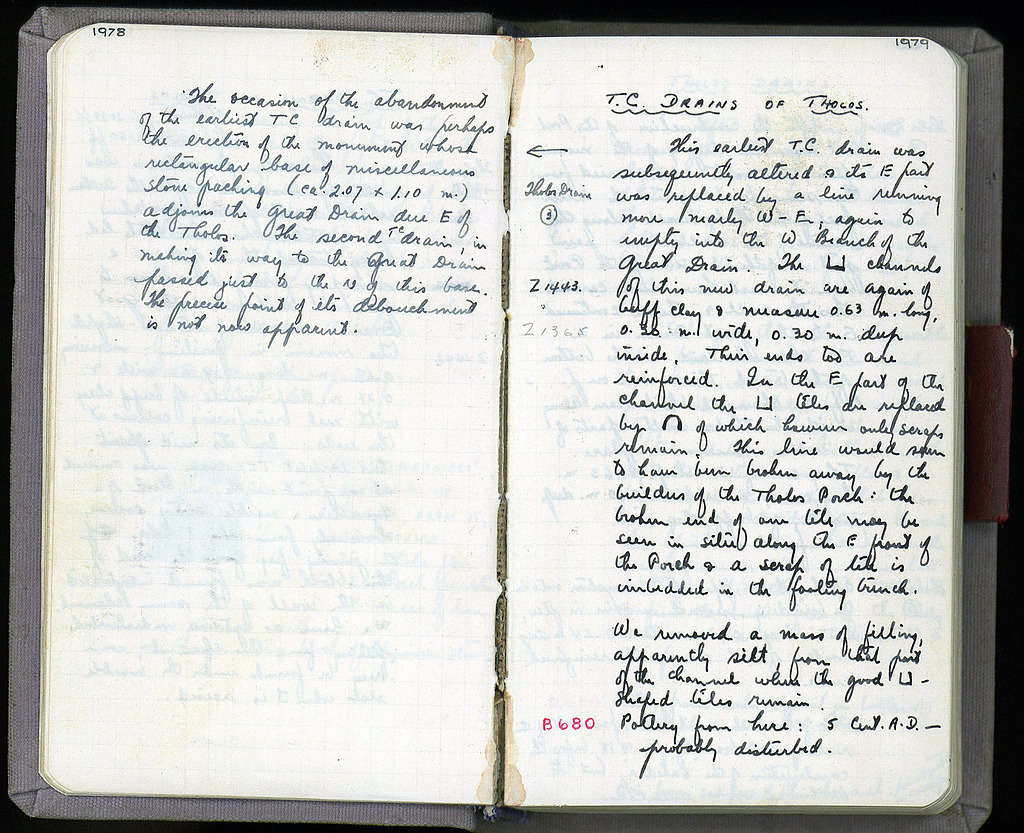 1978
The occasion of the abandonment
of the earliest TC drain was perhaps
the erection of the monument whose
rectangular base of miscellaneous
stone packing (ca. 2.07 x 1.10 m.)
adjoins the Great Drain due E of
the Tholos. The second TC drain, in
making its way to the Great Drain
passed just to the N of this base.
The precise point of its debouchment
is not now apparent.
1979
T.C. DRAINS OF THOLOS.
← This earliest T.C. drain was
subsequently altered & its E part
Tholos Drain was replaced by a line running
③ more nearly W-E, again to
empty into the W Branch of the
Great Drain. The ⊔ channels
Z 1443. of this new drain are again of
" buff clay & measure 0.63 m. long,
Z 1365 0.30 m. wide, 0.30 m. deep
inside. Their ends too are
reinforced. In the E part of the
channel the ⊔ tiles are replaced
by ∩ of which however only scraps
remain. This line would seem
to have been broken away by the
builders of the Tholos Porch: the
broken end of one tile may be
seen in situ along the E front of
the Porch & a scrap of tile is
imbedded in the footing trench.
We removed a mass of filling,
apparently silt, from that part
of the channel where the good ⊔-
shaped tiles remain.
B680 Pottery from here: 5 Cent. A.D. —
probably disturbed.